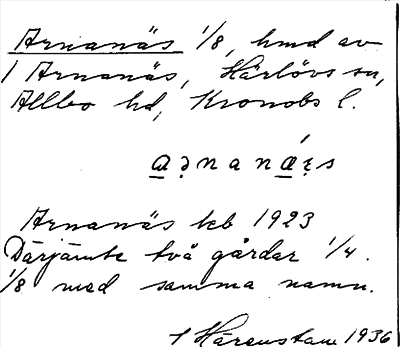 Arnanäs 1/8, hmd av
1 Arnanäs, Härlövs sn,
Allbo hd, Kronobs l.
Arnanäs teb 1923
Därjämte två gårdar 1/4.
1/8 med samma namn.
1 Härenstam 1936